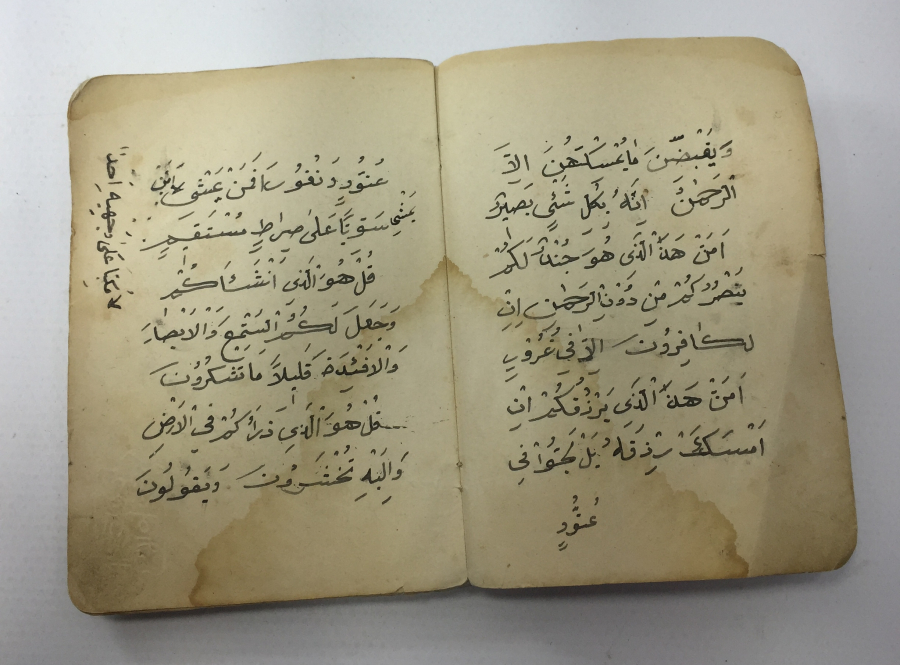 وَيَقْبِضْنَ مَا يُمْسِكُهُنَّ اِلَّا
الرَّحْمٰنُ اِنَّهُ بِكُلِّ شَئٍ بَصِيرٌ
اَمَنْ هَذَا الَّذِى هُوَ جُنْدٌ لَكُمْ
يَنْصُرُكُمْ مِنْ دُونِ الرَّحْمٰنِ اِنِ
لكَافِرُونَ اِلَّا فِي غُرُورٍ
اَمَنْ هَذَا الَّذِى يَرْزُقُكُمْ اِنْ
اَمْسَكَ رِزْقَهُ بَلْ لَجُّوْا فِى
عُتُوٍّ
عُتُوٍّ وَنُفُورٍ اَفَمَنْ يَمْشِى
يَمْشِي سَوِيًّا عَلَى صِرَاطٍ مُسْتَقِمٍ
قُلْ هُوَ الَّذِى اَنْشَئَاكُمْ
وَجَعَلَ لَكُمُ السَّمْعَ وَالْاَبْصَارَ
وَالْاَفْئِدَةَ قَلِيلاً مَا تَشْكُرُونَ
قُلْ هُوَ الَّذِي ذَرَاَكُمْ فِي الْاَرْضِ
وَاِلَيْهِ تُحْشَرُونَ وَيَقُولُونَ
مُكِبًّا عَلَى وَجْهِهِ